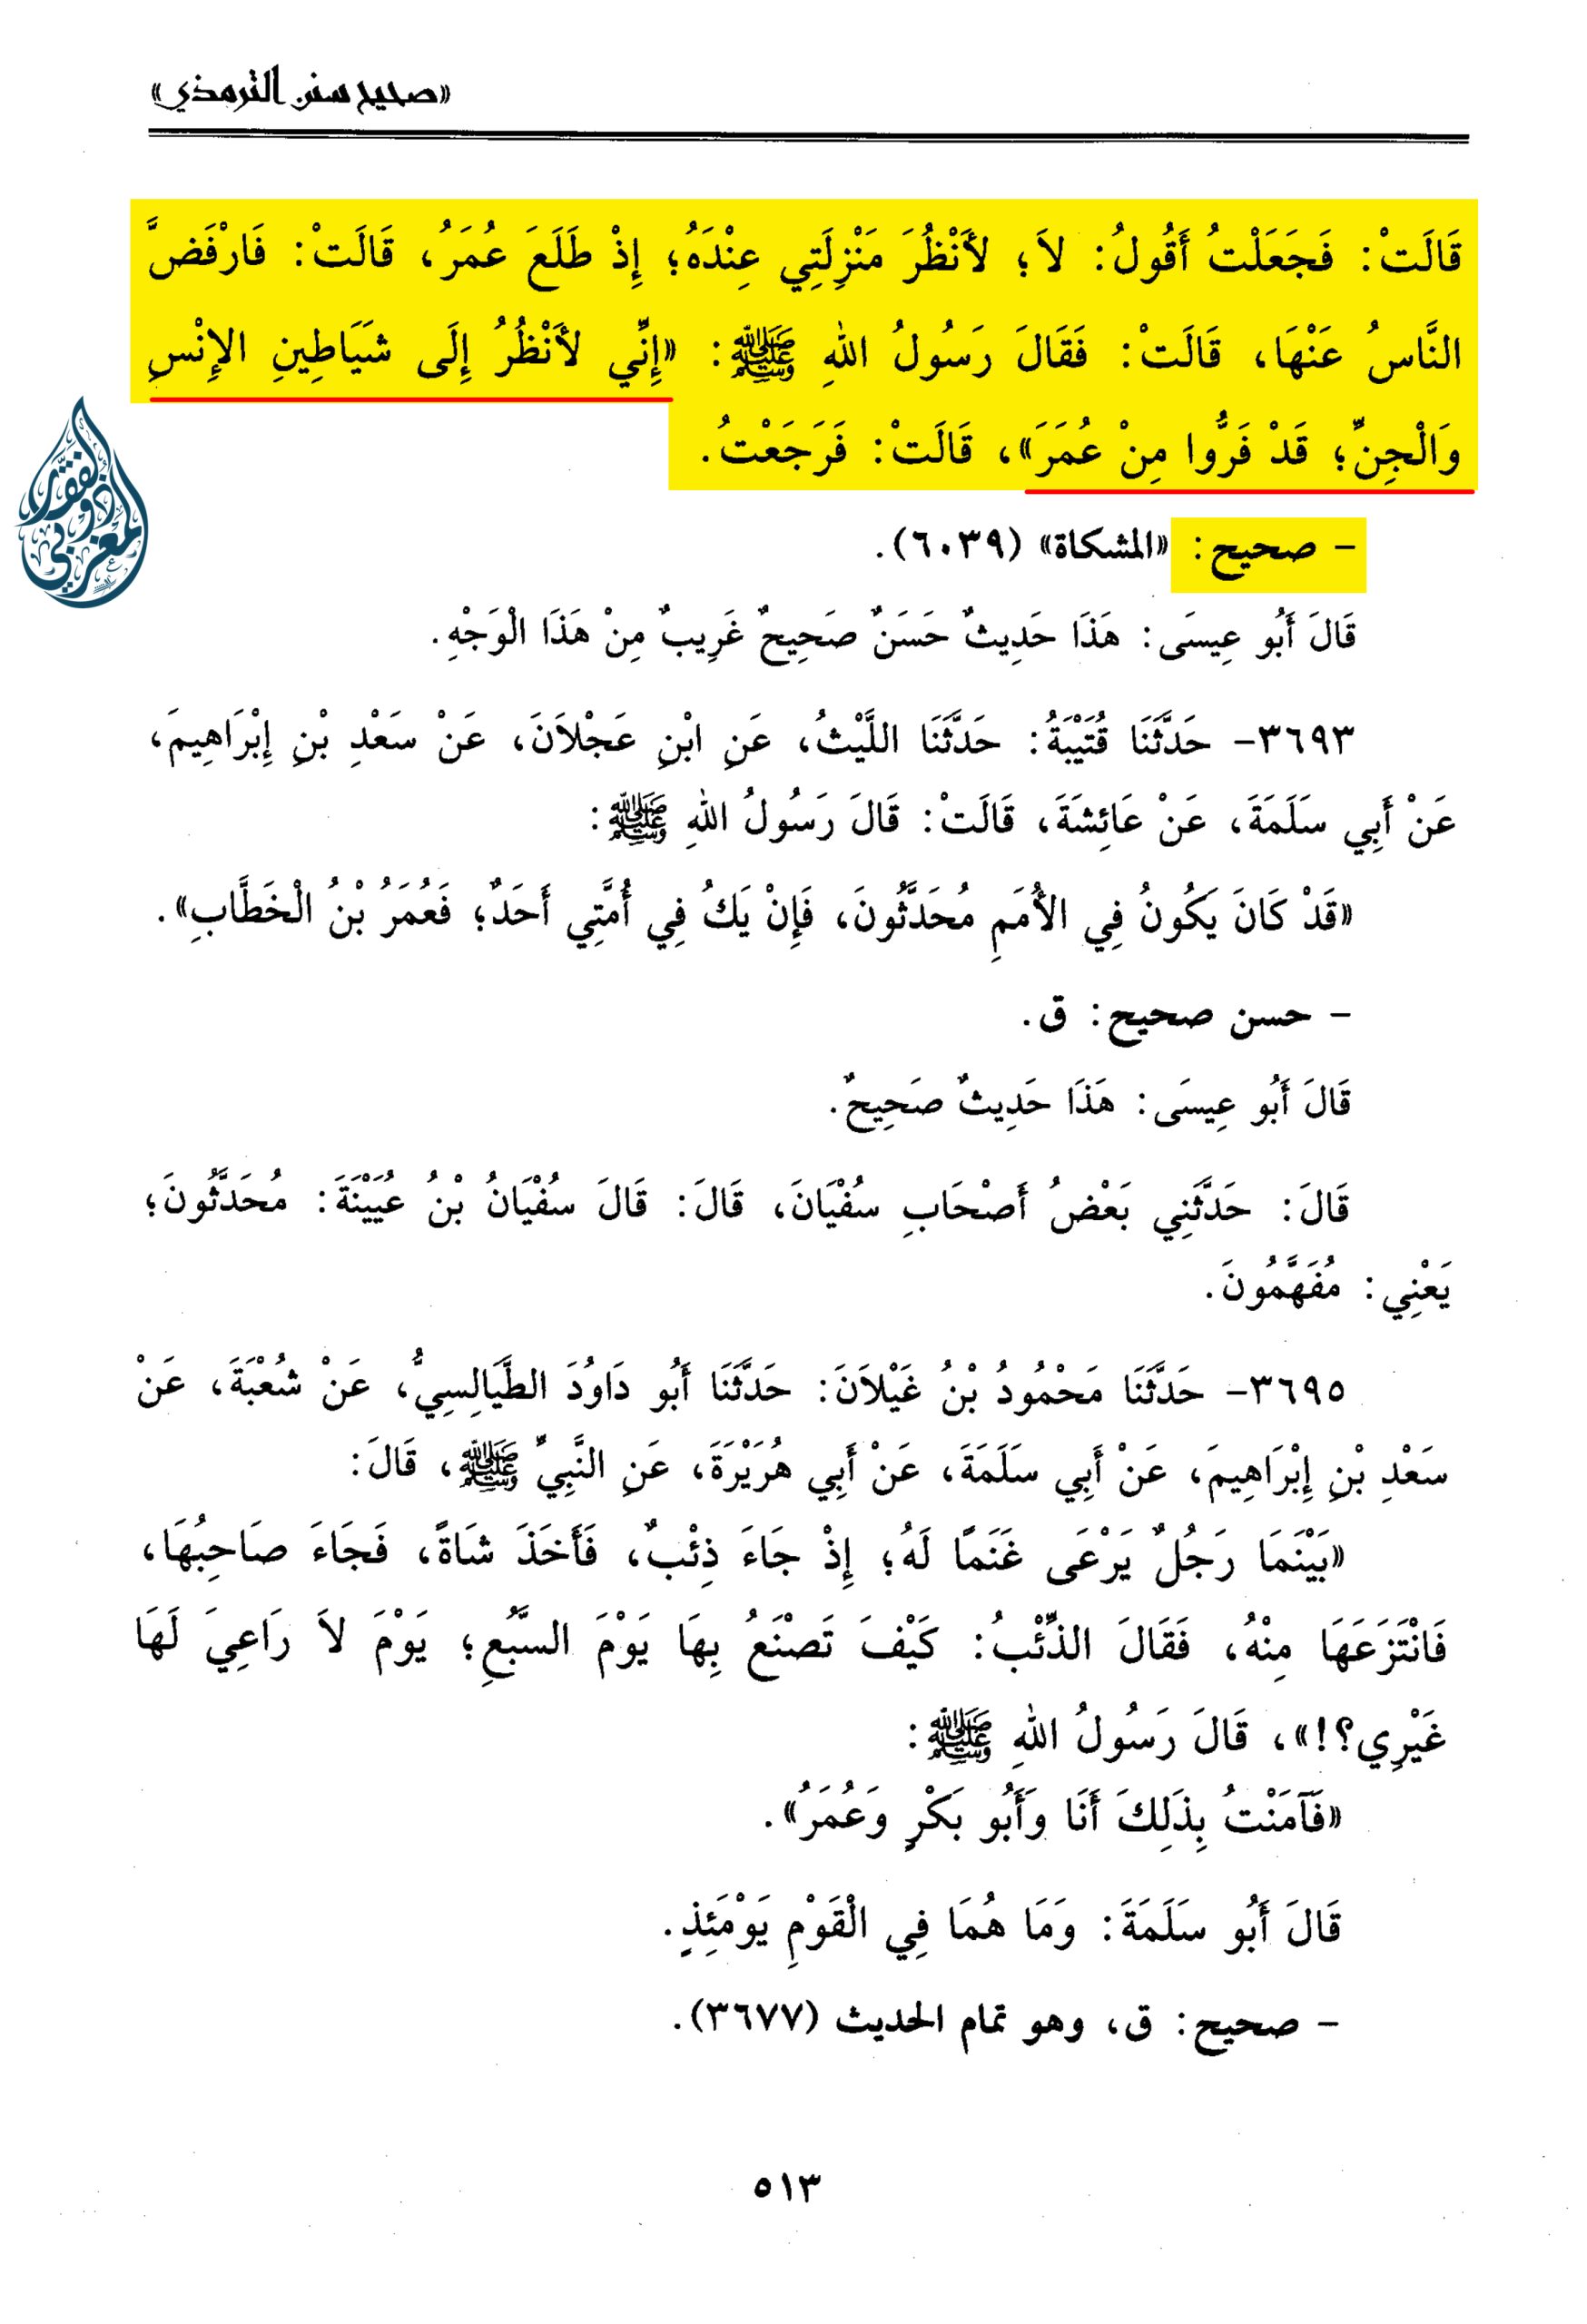 «صحيح سنن الترمذي»
قَالَتْ: فَجَعَلْتُ أَقُولُ: لاَ؛ لأَنْظُرَ مَنْزِلَتِي عِنْدَهُ؛ إِذْ طَلَعَ عُمَرُ، قَالَتْ: فَارْفَضَّ
النَّاسُ عَنْهَا، قَالَتْ: فَقَالَ رَسُولُ اللهِ ﷺ: «إِنِّي لأَنْظُرُ إِلَى شَيَاطِينِ الإِنْسِ
وَالْجِنِّ؛ قَدْ فَرُّوا مِنْ عُمَرَ»، قَالَتْ: فَرَجَعْتُ.
– صحيح: «المشكاة» (٦٠٣٩).
قَالَ أَبُو عِيسَى: هَذَا حَدِيثٌ حَسَنٌ صَحِيحٌ غَرِيبٌ مِنْ هَذَا الْوَجْهِ.
٣٦٩٣– حَدَّثَنَا قُتَيْبَةُ: حَدَّثَنَا اللَّيْثُ، عَنِ ابْنِ عَجْلاَنَ، عَنْ سَعْدِ بْنِ إِبْرَاهِيمَ،
عَنْ أَبِي سَلَمَةَ، عَنْ عَائِشَةَ، قَالَتْ: قَالَ رَسُولُ اللهِ ﷺ:
«قَدْ كَانَ يَكُونُ فِي الأُمَمِ مُحَدَّثُونَ، فَإِنْ يَكُ فِي أُمَّتِي أَحَدٌ؛ فَعُمَرُ بْنُ الْخَطَّابِ».
– حسن صحيح: ق.
قَالَ أَبُو عِيسَى: هَذَا حَدِيثٌ صَحِيحٌ.
قَالَ: حَدَّثَنِي بَعْضُ أَصْحَابِ سُفْيَانَ، قَالَ: قَالَ سُفْيَانُ بْنُ عُيَيْنَةَ: مُحَدَّثُونَ؛
يَعْنِي: مُفَهَّمُونَ.
٣٦٩٥– حَدَّثَنَا مَحْمُودُ بْنُ غَيْلاَنَ: حَدَّثَنَا أَبُو دَاوُدَ الطَّيَالِسِيُّ، عَنْ شُعْبَةَ، عَنْ
سَعْدِ بْنِ إِبْرَاهِيمَ، عَنْ أَبِي سَلَمَةَ، عَنْ أَبِي هُرَيْرَةَ، عَنِ النَّبِيِّ ﷺ، قَالَ:
«بَيْنَمَا رَجُلٌ يَرْعَى غَنَمًا لَهُ؛ إِذْ جَاءَ ذِئْبٌ، فَأَخَذَ شَاةً، فَجَاءَ صَاحِبُهَا،
فَانْتَزَعَهَا مِنْهُ، فَقَالَ الذِّئْبُ: كَيْفَ تَصْنَعُ بِهَا يَوْمَ السَّبُعِ؛ يَوْمَ لاَ رَاعِيَ لَهَا
غَيْرِي؟!»، قَالَ رَسُولُ اللهِ ﷺ:
«فَآمَنْتُ بِذَلِكَ أَنَا وَأَبُو بَكْرٍ وَعُمَرُ».
قَالَ أَبُو سَلَمَةَ: وَمَا هُمَا فِي الْقَوْمِ يَوْمَئِذٍ.
– صحيح: ق، وهو تمام الحديث (٣٦٧٧).
٥١٣